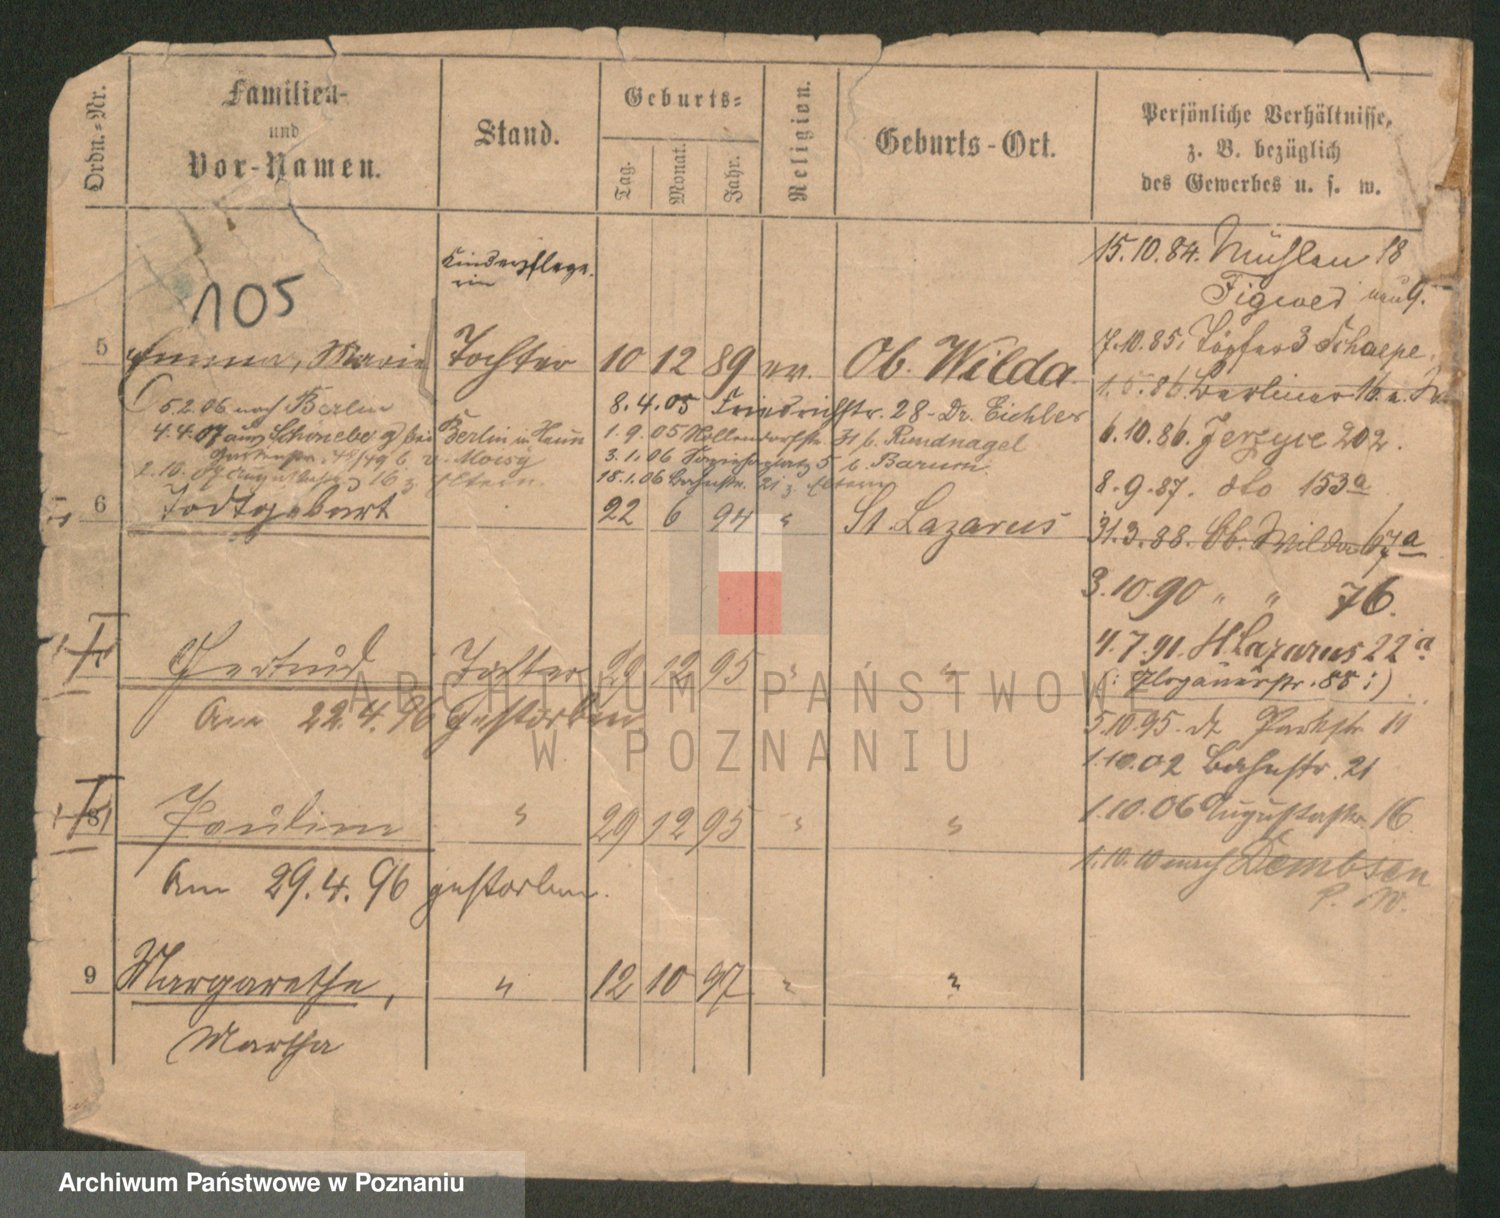 Ordn.-Nr.
Familien-
und
Vor-Namen.
Stand.
Geburts-
Tag.
Monat.
Jahr.
Religion.
Geburts-Ort.
Persönliche Verhältnisse,
z. B. bezüglich
des Gewerbes u. s. w.
105
Kinderpflege-
rin
15.10.84. Mühlen 18
neu 9.
5 Emma, Marie Tochter 10 12 89 ev. Ob. Wilda
7.10.85. Töpfer 3 Schaepe.
1.5.86. Berliner 16
5.2.06 nach Berlin
8.4.05 Friedrichstr. 28 Dr. Eichler
4.4.07 aus Schöneberg bei Berlin
1.9.05 Nollendorfstr. 31 b. Rundnagel
3.1.06 5 b. Barum
2.10.07 Augustastr. 16 z Eltern
18.1.06 Bahnstr. 21 z Eltern
6.10.86. Jerzyce 202.
8.9.87. dto 153a
6 Todtgeburt 22 6 94 " St. Lazarus
31.3.88. Ob. Wilda 67a
3.10.90 " " 76.
4.7.91. St Lazarus 22a
(: Glogauerstr. 85 :)
7 Gertrud Tochter 29 12 95 " "
Am 22.4.96 gestorben
5.10.95. dt Parkstr 11
1.10.02 Bahnstr. 21
8 Paulina " 29 12 95 " "
1.10.06 Augustastr. 16
1.10.10 nach Dembsen
P. W.
Am 29.4.96 gestorben.
9 Margarethe, " 12 10 97 " "
Martha
ARCHIWUM PAŃSTWOWE
W POZNANIU
Archiwum Państwowe w Poznaniu